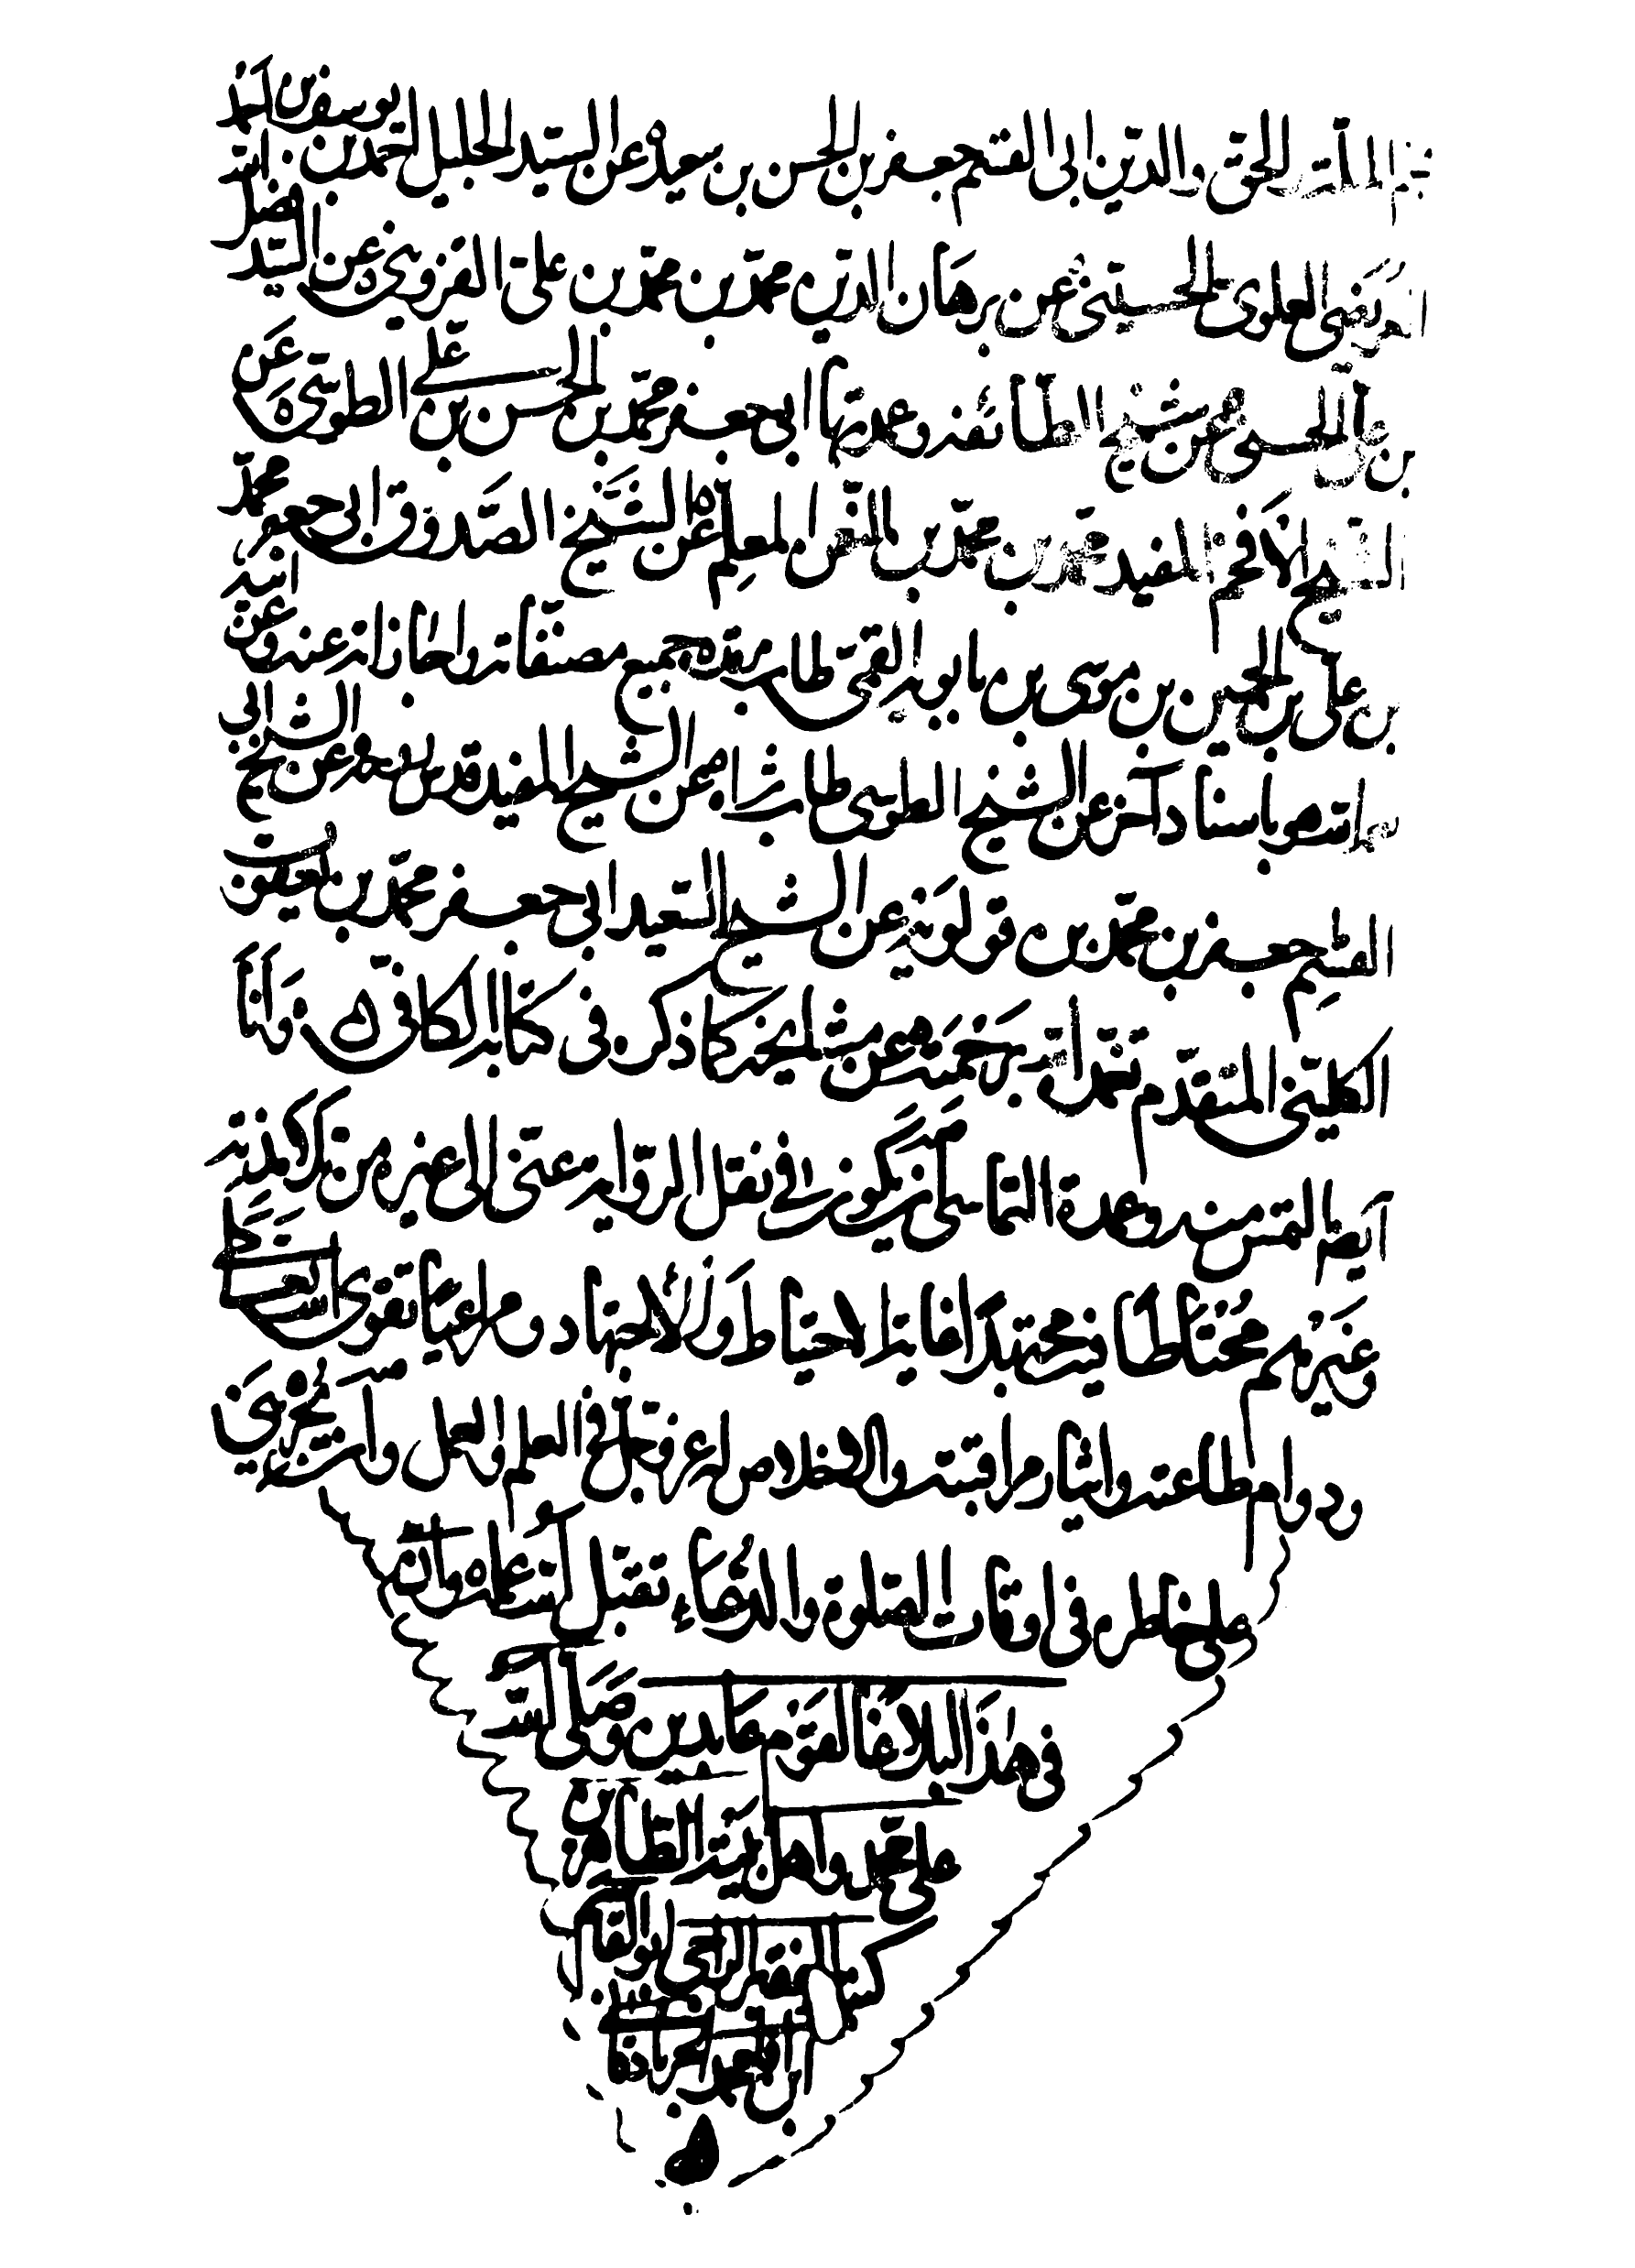 نجم الملة والحق والدين ابى القسم جعفر بن الحسن بن سعيد عن السيد الجليل احمد بن يوسف بن احمد
العريضى العلوى الحسينى عن برهان الدين محمد بن محمد بن على القزوينى عن السيد فضل الله
بن على الحسنى عن شيخ الطائفه وعمدتها ابى جعفر محمد بن الحسن بن على الطوسى عن
الشيخ الافخم المفيد محمد بن محمد بن النعمان المعلم عن الشيخ الصدوق ابى جعفر محمد
بن على بن الحسين بن موسى بن بابويه القمى طاب مرقده جميع مصنفاته واجازاته عنه وعن ابيه
رحمهما الله وباسناد آخر عن الشيخ الطوسى طاب ثراه عن الشيخ المفيد قدس عن الشيخ ابى
القسم جعفر بن محمد بن قولويه عن الشيخ السعيد ابى جعفر محمد بن يعقوب
الكلينى المتقدم تغمده الله برحمته عن مشايخه كما ذكره فى كتابه الكافى وانا
ايضا التمس منه وعمدة التماسى ان يكون فى نقل الرواية عنى الى غيره من تلامذته
وغيرهم محتاطا فيه مجتهدا غاية الاحتياط والاجتهاد ومراعيا تقوى الله
ودوام طاعته وايثار مراقبته والاخلاص له عز وجل فى العلم والعمل وان يجرينى
على خاطره فى اوقات الصلوة والدعاء تقبل الله عمله
فى هذا البلاغا لقوم عابدين وصلى الله
على محمد واهل بيته الطاهرين
كتبه الفقير الراجى ابو القاسم
ابن محمد الجرباذقانى